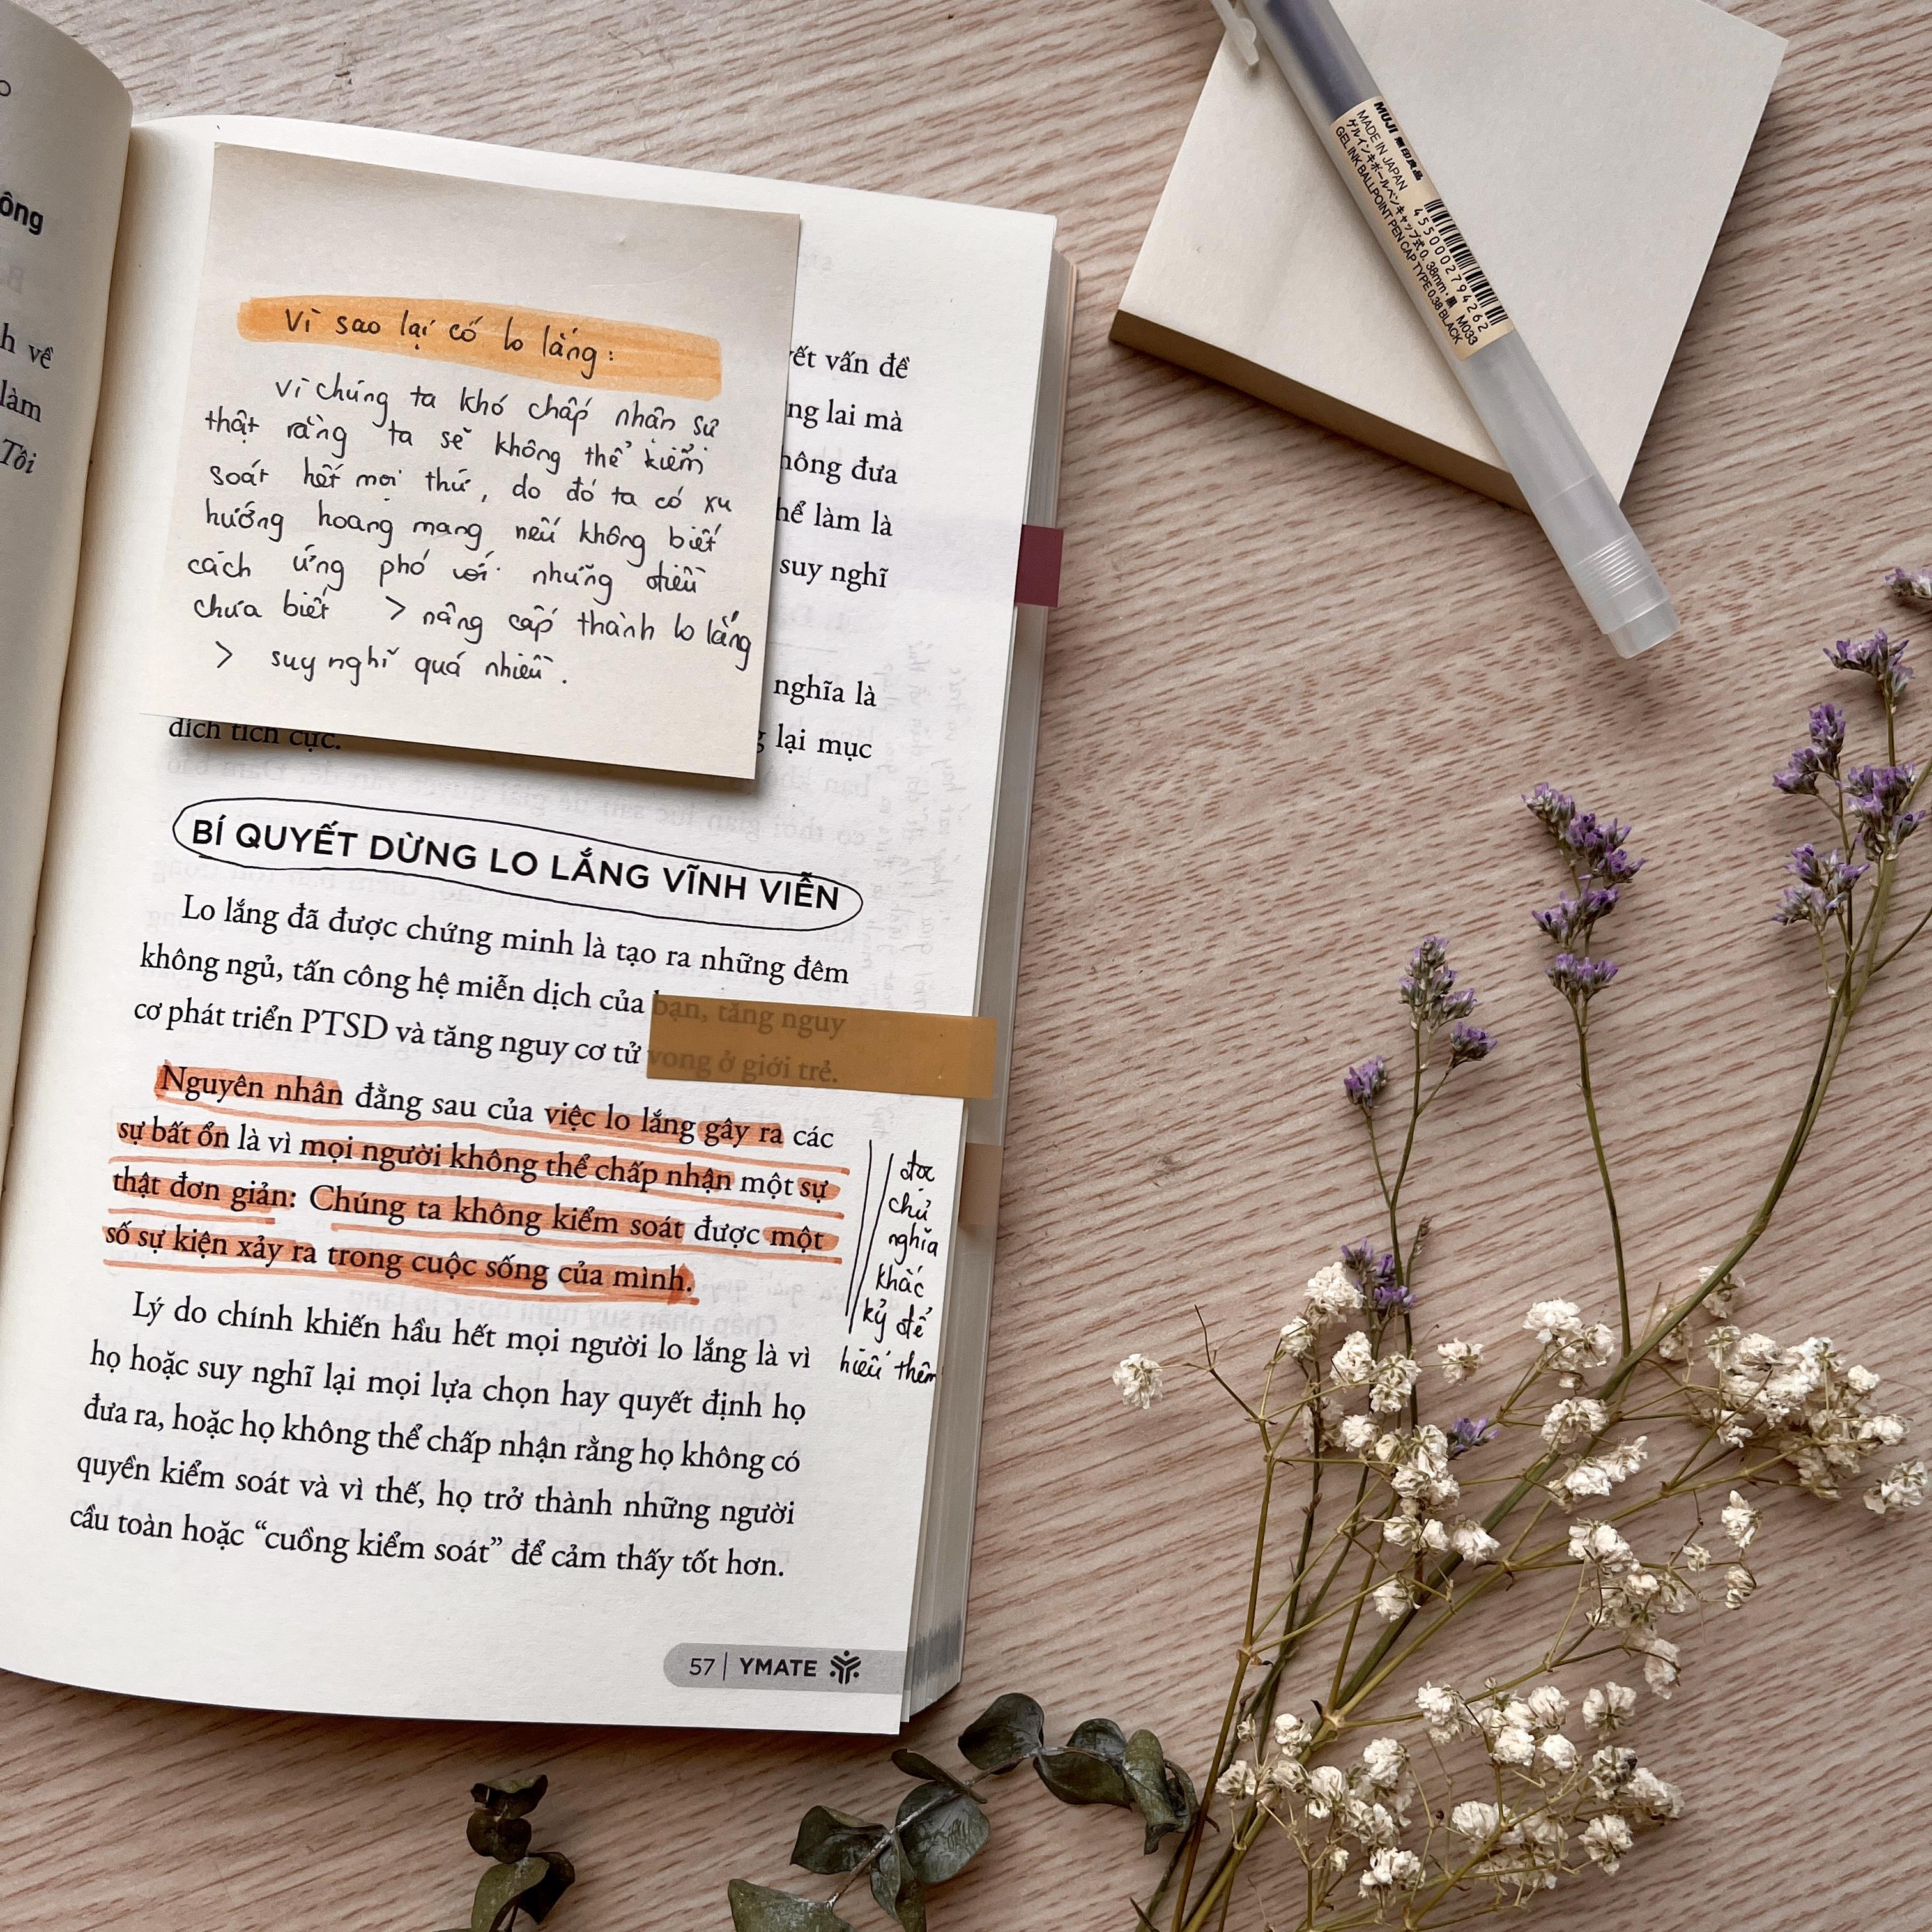 ông
h về
làm
Tôi
Vì sao lại có lo lắng:
vì chúng ta khó chấp nhận sự
thật rằng ta sẽ không thể kiểm
soát hết mọi thứ, do đó ta có xu
hướng hoang mang nếu không biết
cách ứng phó với những điều
chưa biết > nâng cấp thành lo lắng
> suy nghĩ quá nhiều.
ết vấn đề
ng lai mà
hông đưa
hể làm là
suy nghĩ
nghĩa là
lại mục
đích tích cực.
BÍ QUYẾT DỪNG LO LẮNG VĨNH VIỄN
Lo lắng đã được chứng minh là tạo ra những đêm
không ngủ, tấn công hệ miễn dịch của bạn, tăng nguy
cơ phát triển PTSD và tăng nguy cơ tử vong ở giới trẻ.
Nguyên nhân đằng sau của việc lo lắng gây ra các
sự bất ổn là vì mọi người không thể chấp nhận một sự
thật đơn giản: Chúng ta không kiểm soát được một
số sự kiện xảy ra trong cuộc sống của mình.
đọc
chủ
nghĩa
khắc
kỷ để
hiểu thêm
Lý do chính khiến hầu hết mọi người lo lắng là vì
họ hoặc suy nghĩ lại mọi lựa chọn hay quyết định họ
đưa ra, hoặc họ không thể chấp nhận rằng họ không có
quyền kiểm soát và vì thế, họ trở thành những người
cầu toàn hoặc “cuồng kiểm soát” để cảm thấy tốt hơn.
57 | YMATE
MUJI 無印良品
MADE IN JAPAN
ゲルインキボールペンキャップ式0.38mm・黒 M033
GEL INK BALLPOINT PEN CAP TYPE 0.38 BLACK
4550002794262